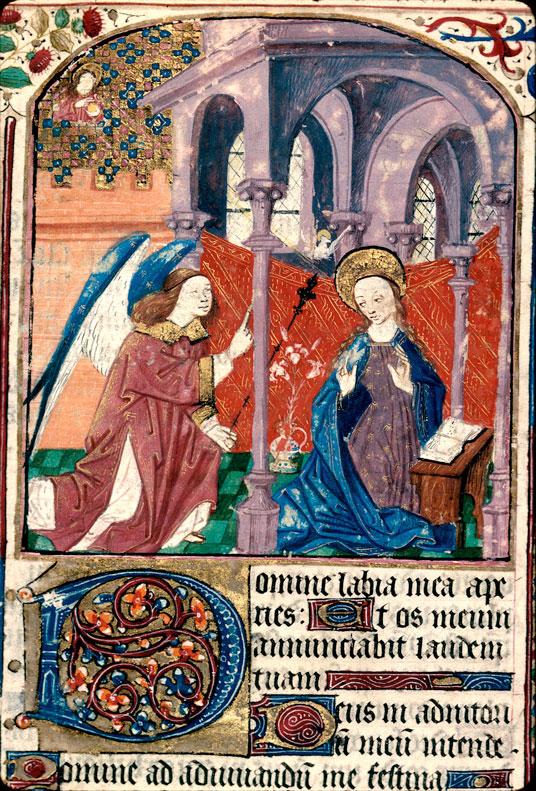 Domine labia mea ape
ries: Et os meum
annunciabit laudem
tuam
Deus in adiutori
ū meū intende.
Domine ad adiuuandū me festina